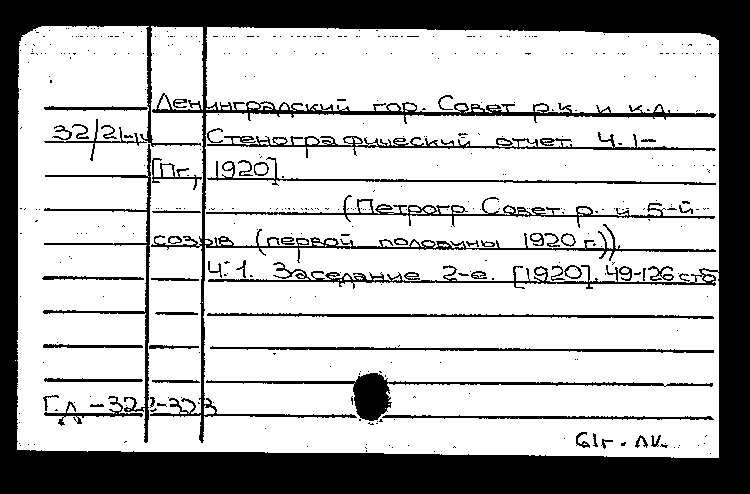 Ленинградский гор. Совет р.к. и к.д.
32/21-14 Стенографический отчет. Ч. 1-
[Пг., 1920].
(Петрогр. Совет. р. и 5-й
созыв (первой половины 1920 г.)).
Ч. 1. Заседание 2-е. [1920]. 49-126 стб
Г.Л. -322-323
61г.